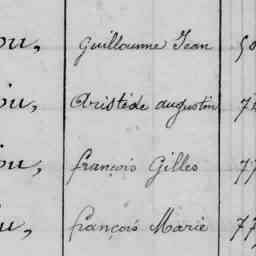 ou, Guillaume Jean 50
ou, Aristide augustin 7
ou, françois Gilles 77
u, françois Marie 77